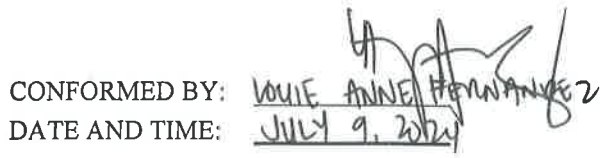 CONFORMED BY: LOUIE ANNE HERNANDEZ
DATE AND TIME: JULY 9, 2024